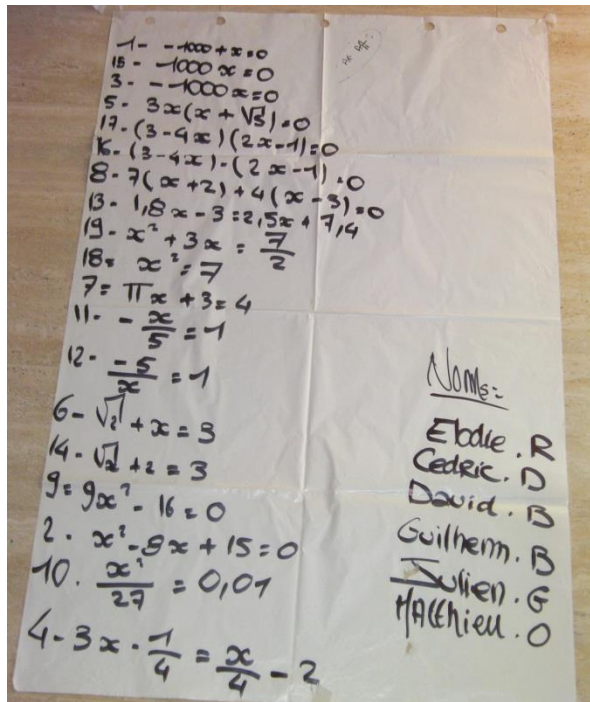 1- -1000+x=0
15- -1000x=0
3- -1000x=0
5- 3x(x+√3)=0
17-(3-4x)(2x-1)=0
16-(3-4x)-(2x-1)=0
8-7(x+2)+4(x-3)=0
13-1,8x-3=2,5x+7,4
19-x²+3x=7/2
18= x²=7
7= πx+3=4
11- -x/5=1
12- -5/x=1
6-√2+x=3
14-√x+2=3
9=9x²-16=0
2. x²-8x+15=0
10. x²/27=0,01
4-3x-1/4=x/4-2
Noms=
Elodie.R
Cedric.D
David.B
Guilherm.B
Julien.G
Matthieu.O